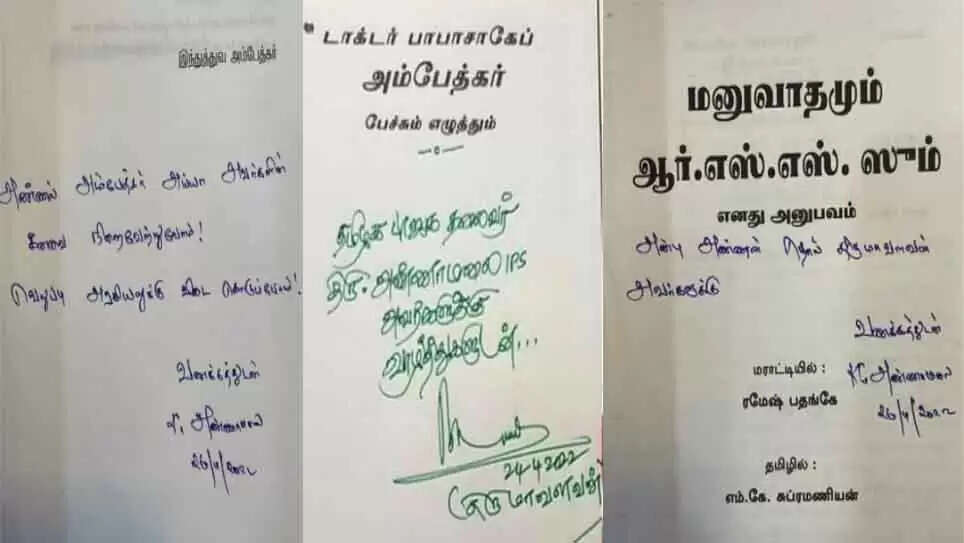 இந்துத்துவ அம்பேத்கர்
அண்ணல் அம்பேத்கர் அய்யா அவர்களின்
கனவை நிறைவேற்றுவோம்!
வெறுப்பு அரசியலுக்கு விடை கொடுப்போம்!
வணக்கத்துடன்
அண்ணாமலை
டாக்டர் பாபாசாகேப்
அம்பேத்கர்
பேச்சும் எழுத்தும்
தமிழக பாஜக தலைவர்
திரு. அண்ணாமலை IPS
அவர்களுக்கு
வாழ்த்துகளுடன்...
24-4-2022
திருமாவளவன்
மனுவாதமும்
ஆர்.எஸ்.எஸ். ஸும்
எனது அனுபவம்
அன்பு அண்ணன் தொல் திருமாவளவன்
அவர்களுக்கு
வணக்கத்துடன்
மராட்டியில் :
ரமேஷ் பதங்கே
K. அண்ணாமலை
தமிழில் :
எம்.கே. சுப்ரமணியன்